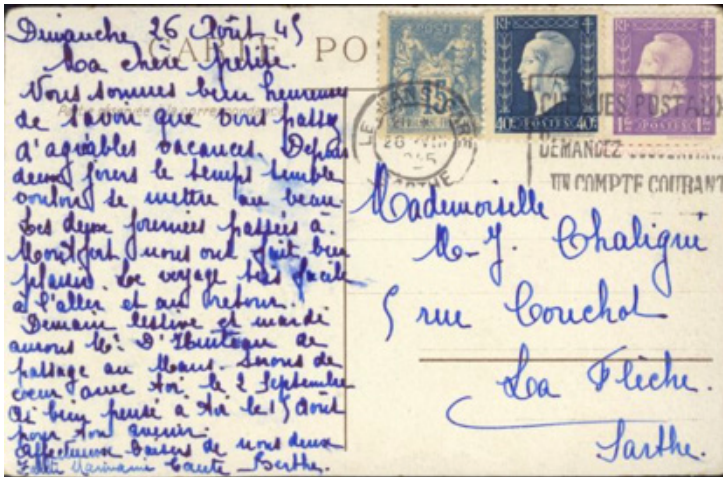 Dimanche 26 Août 45
CARTE PO
Ma chère petite.
Nous sommes bien heureuses
de savoir que vous passez
d'agréables vacances. Depuis
deux jours le temps semble
vouloir se mettre au beau.
Les deux journées passées à
Montfort nous ont fait bien
plaisir. Le voyage très facile
à l'aller et au retour.
Demain lessive et mardi
aurons Mr D' de
passage au Mans. Serons de
cœur avec toi le 2 Septembre
Ai bien pensé à toi le 15 Août
pour ton avenir.
Affectueux baisers de nous deux
Petite Marraine Tante Berthe.
15
RF
40c POSTES 40c
RF
POSTES
LE MANS
28 VIII
SARTHE
CHEQUES POSTAUX
DEMANDEZ
UN COMPTE COURANT
Mademoiselle
M-J. Chaligné
5 rue Couchot
La Flèche.
Sarthe.